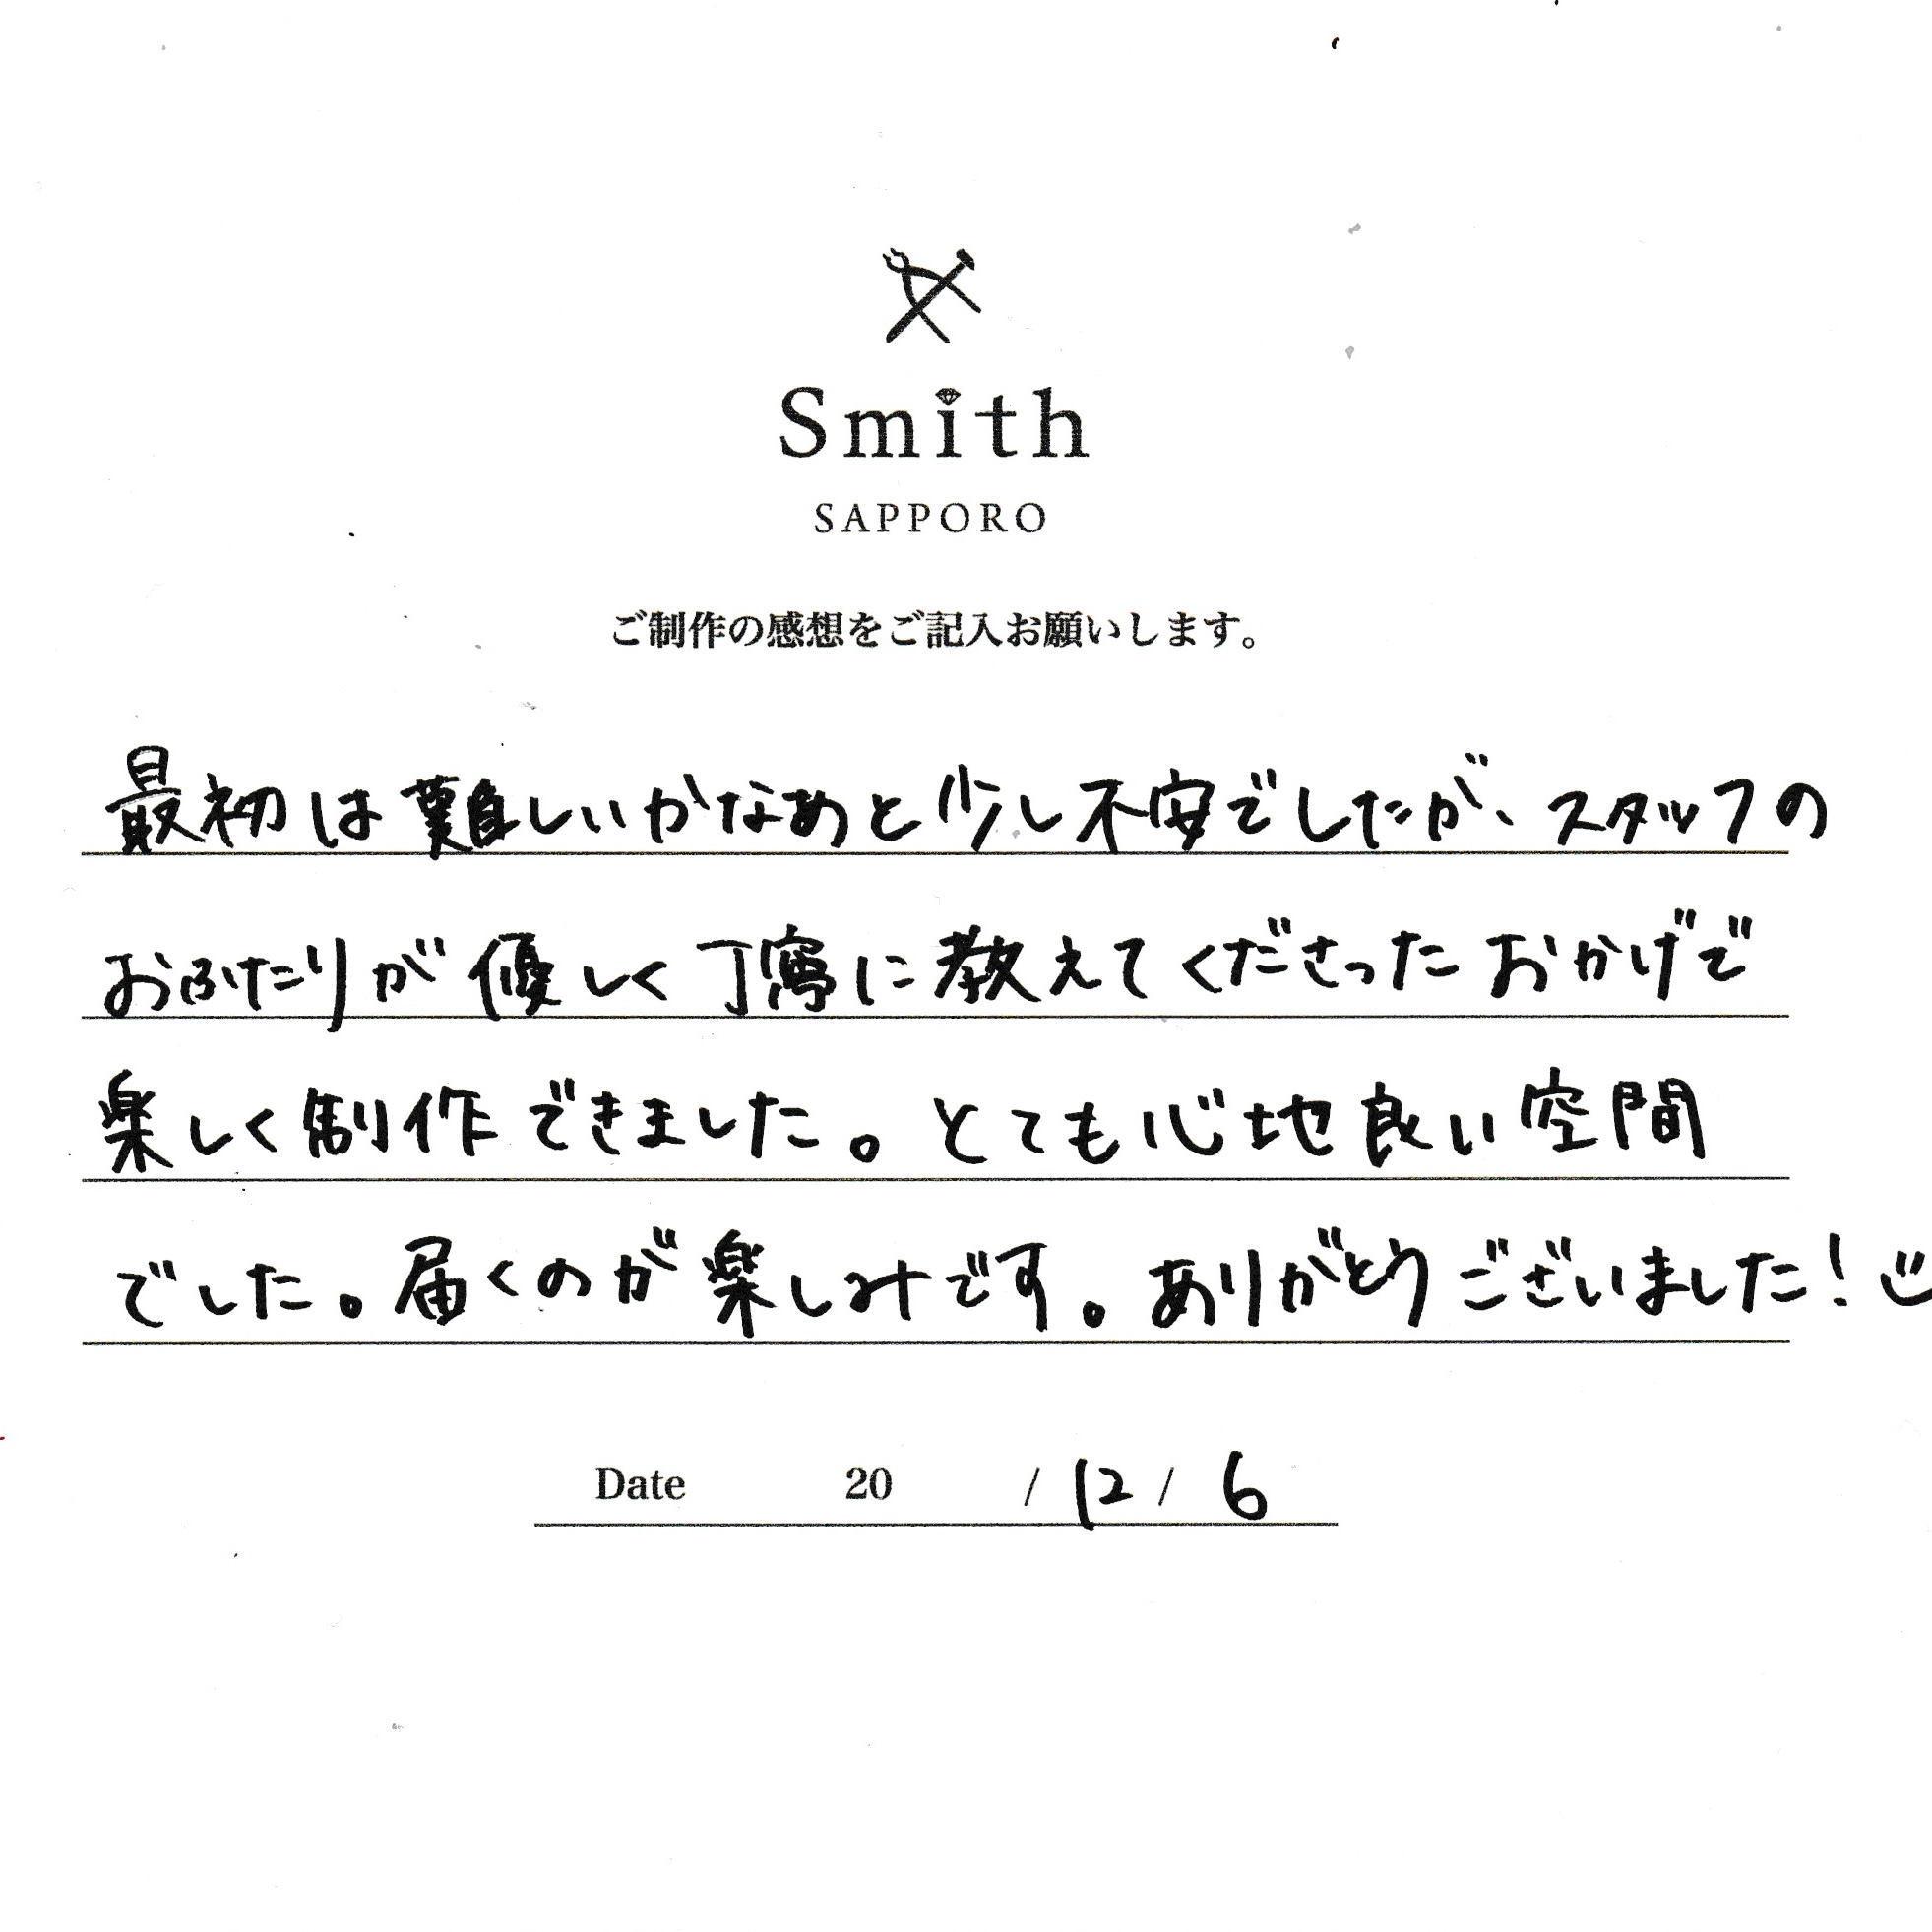 Smith
SAPPORO
ご制作の感想をご記入お願いします。
最初は難しいかなあと少し不安でしたが、スタッフの
おふたりが優しく丁寧に教えてくださったおかげで
楽しく制作できました。とても心地良い空間
でした。届くのが楽しみです。ありがとうございました!
Date 20 / 12 / 6